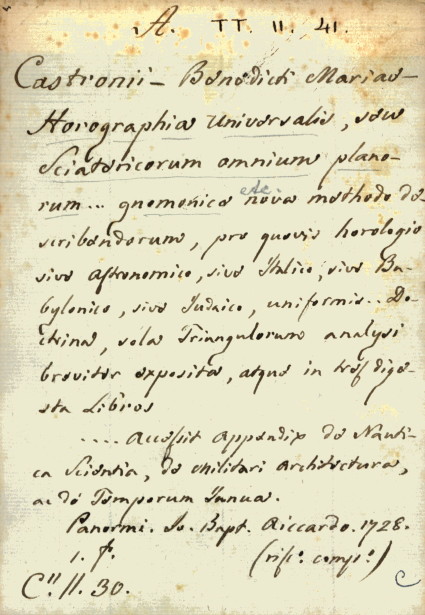 A. TT. II. 41.
Castronii - Benedicti Mariae -
Horographia Universalis, seu
Sciatericorum omnium plano-
rum... gnomonice etc. nova methodo de-
scribendorum, pro quovis horologio
sive Astronomico, sive Italico, sive Ba-
bylonico, sive Iudaico, uniformis.. Do-
ctrina, sola Triangulorum analysi
breviter exposita, atque in tres dige-
sta Libros
.... Accessit Appendix de Nauti-
ca Scientia, de militari Architectura,
ac de Temporum Ianua.
Panormi. Io. Bapt. Aiccardo. 1728.
1. f. (rif.° comp.°)
C." 11. 30. C